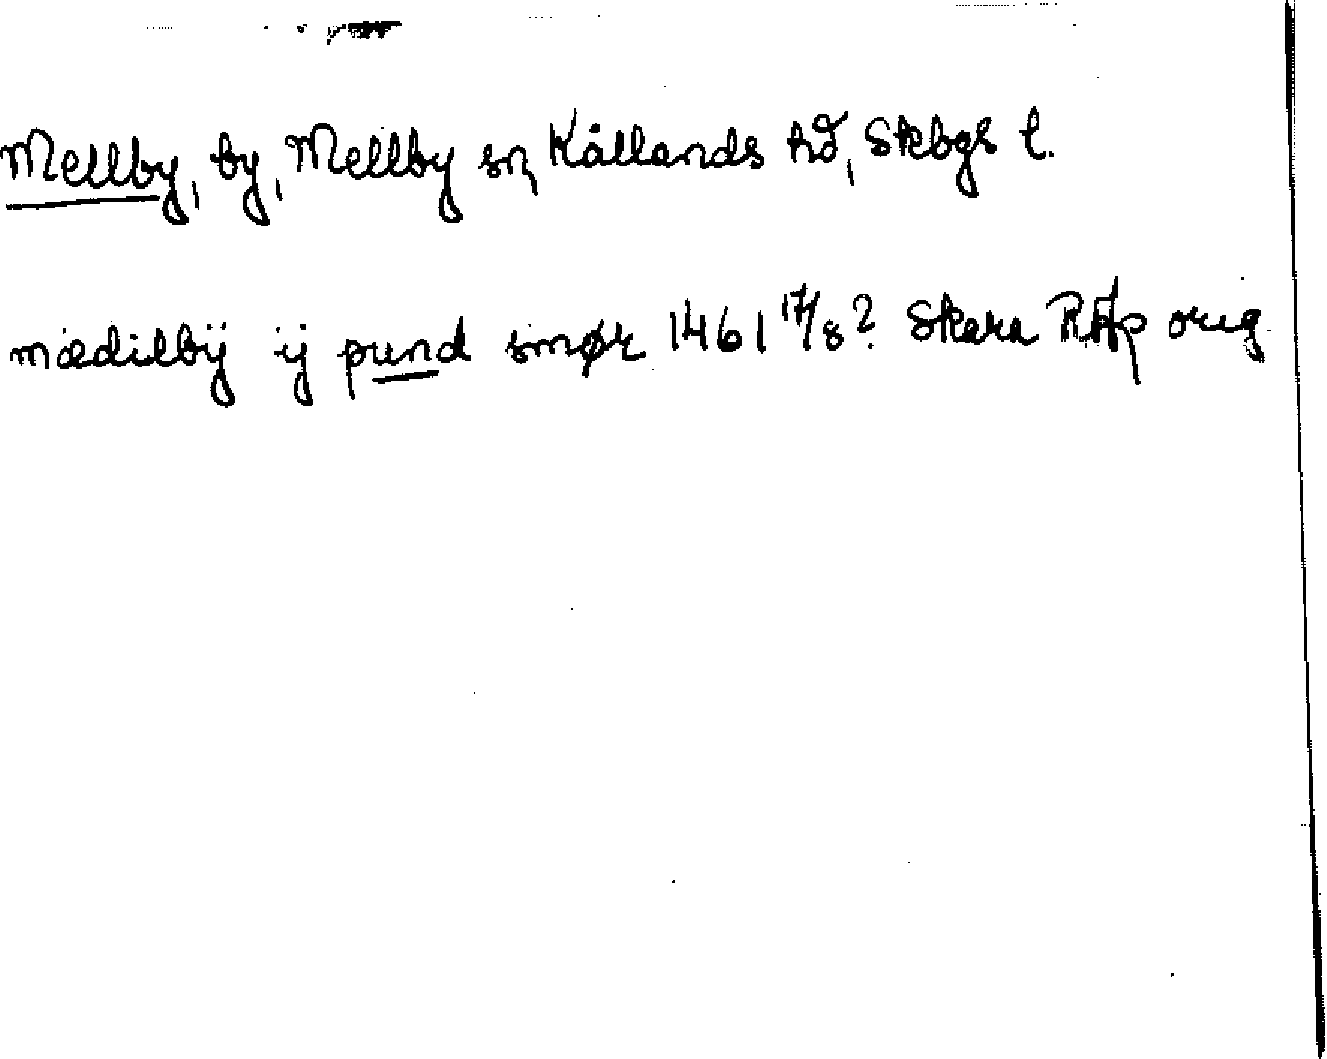 Mellby, by, Mellby sn, Kållands hd, Skbgs l.
mædilbÿ ij pund smør 1461 17/8? Skara RAp orig